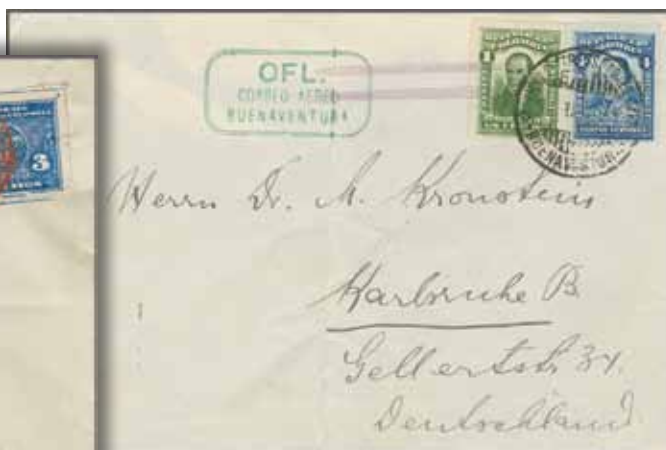 OFL.
CORREO AEREO
BUENAVENTURA
3
1
4
BUENAVENTURA
Herrn Dr. M. Kronstein
Karlsruhe B.
Gellertstr 34.
Deutschland